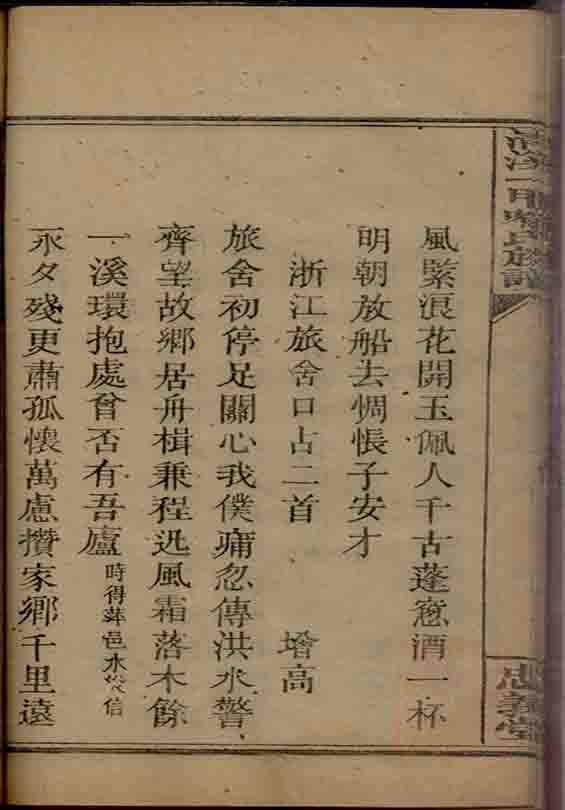 氏族譜
忠義堂
風緊浪花開玉佩人千古蓬窓酒一杯
明朝放船去惆悵子安才
浙江旅舍口占二首 增高
旅舍初停足關心我僕痡忽傳洪水警
齊望故鄉居舟楫兼程迅風霜落木餘
一溪環抱處曾否有吾廬 時得萍邑水災信
永夕殘更肅孤懷萬慮攢家鄉千里遠